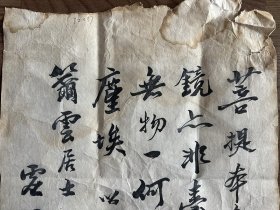 菩提本
鏡亦非臺
無物一何
塵埃
雲居士